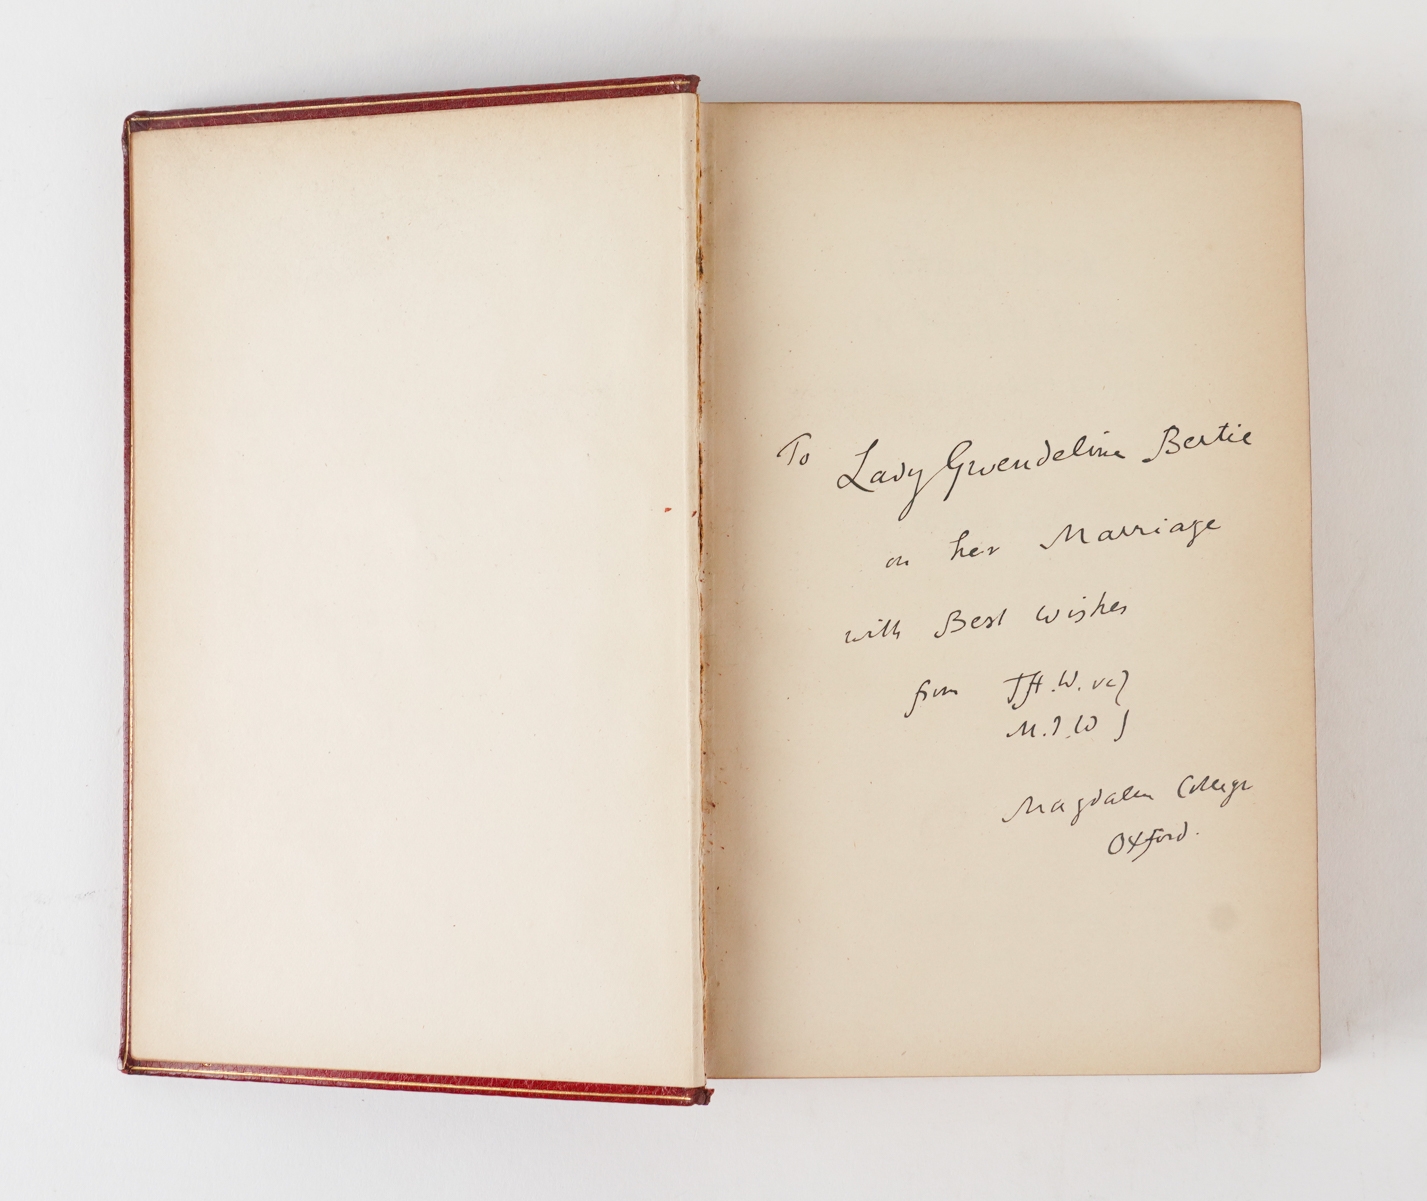 To Lady Gwendeline Bertie
on her Marriage
with Best Wishes
from T.H.W.
M.J.W
Magdalen College
Oxford.